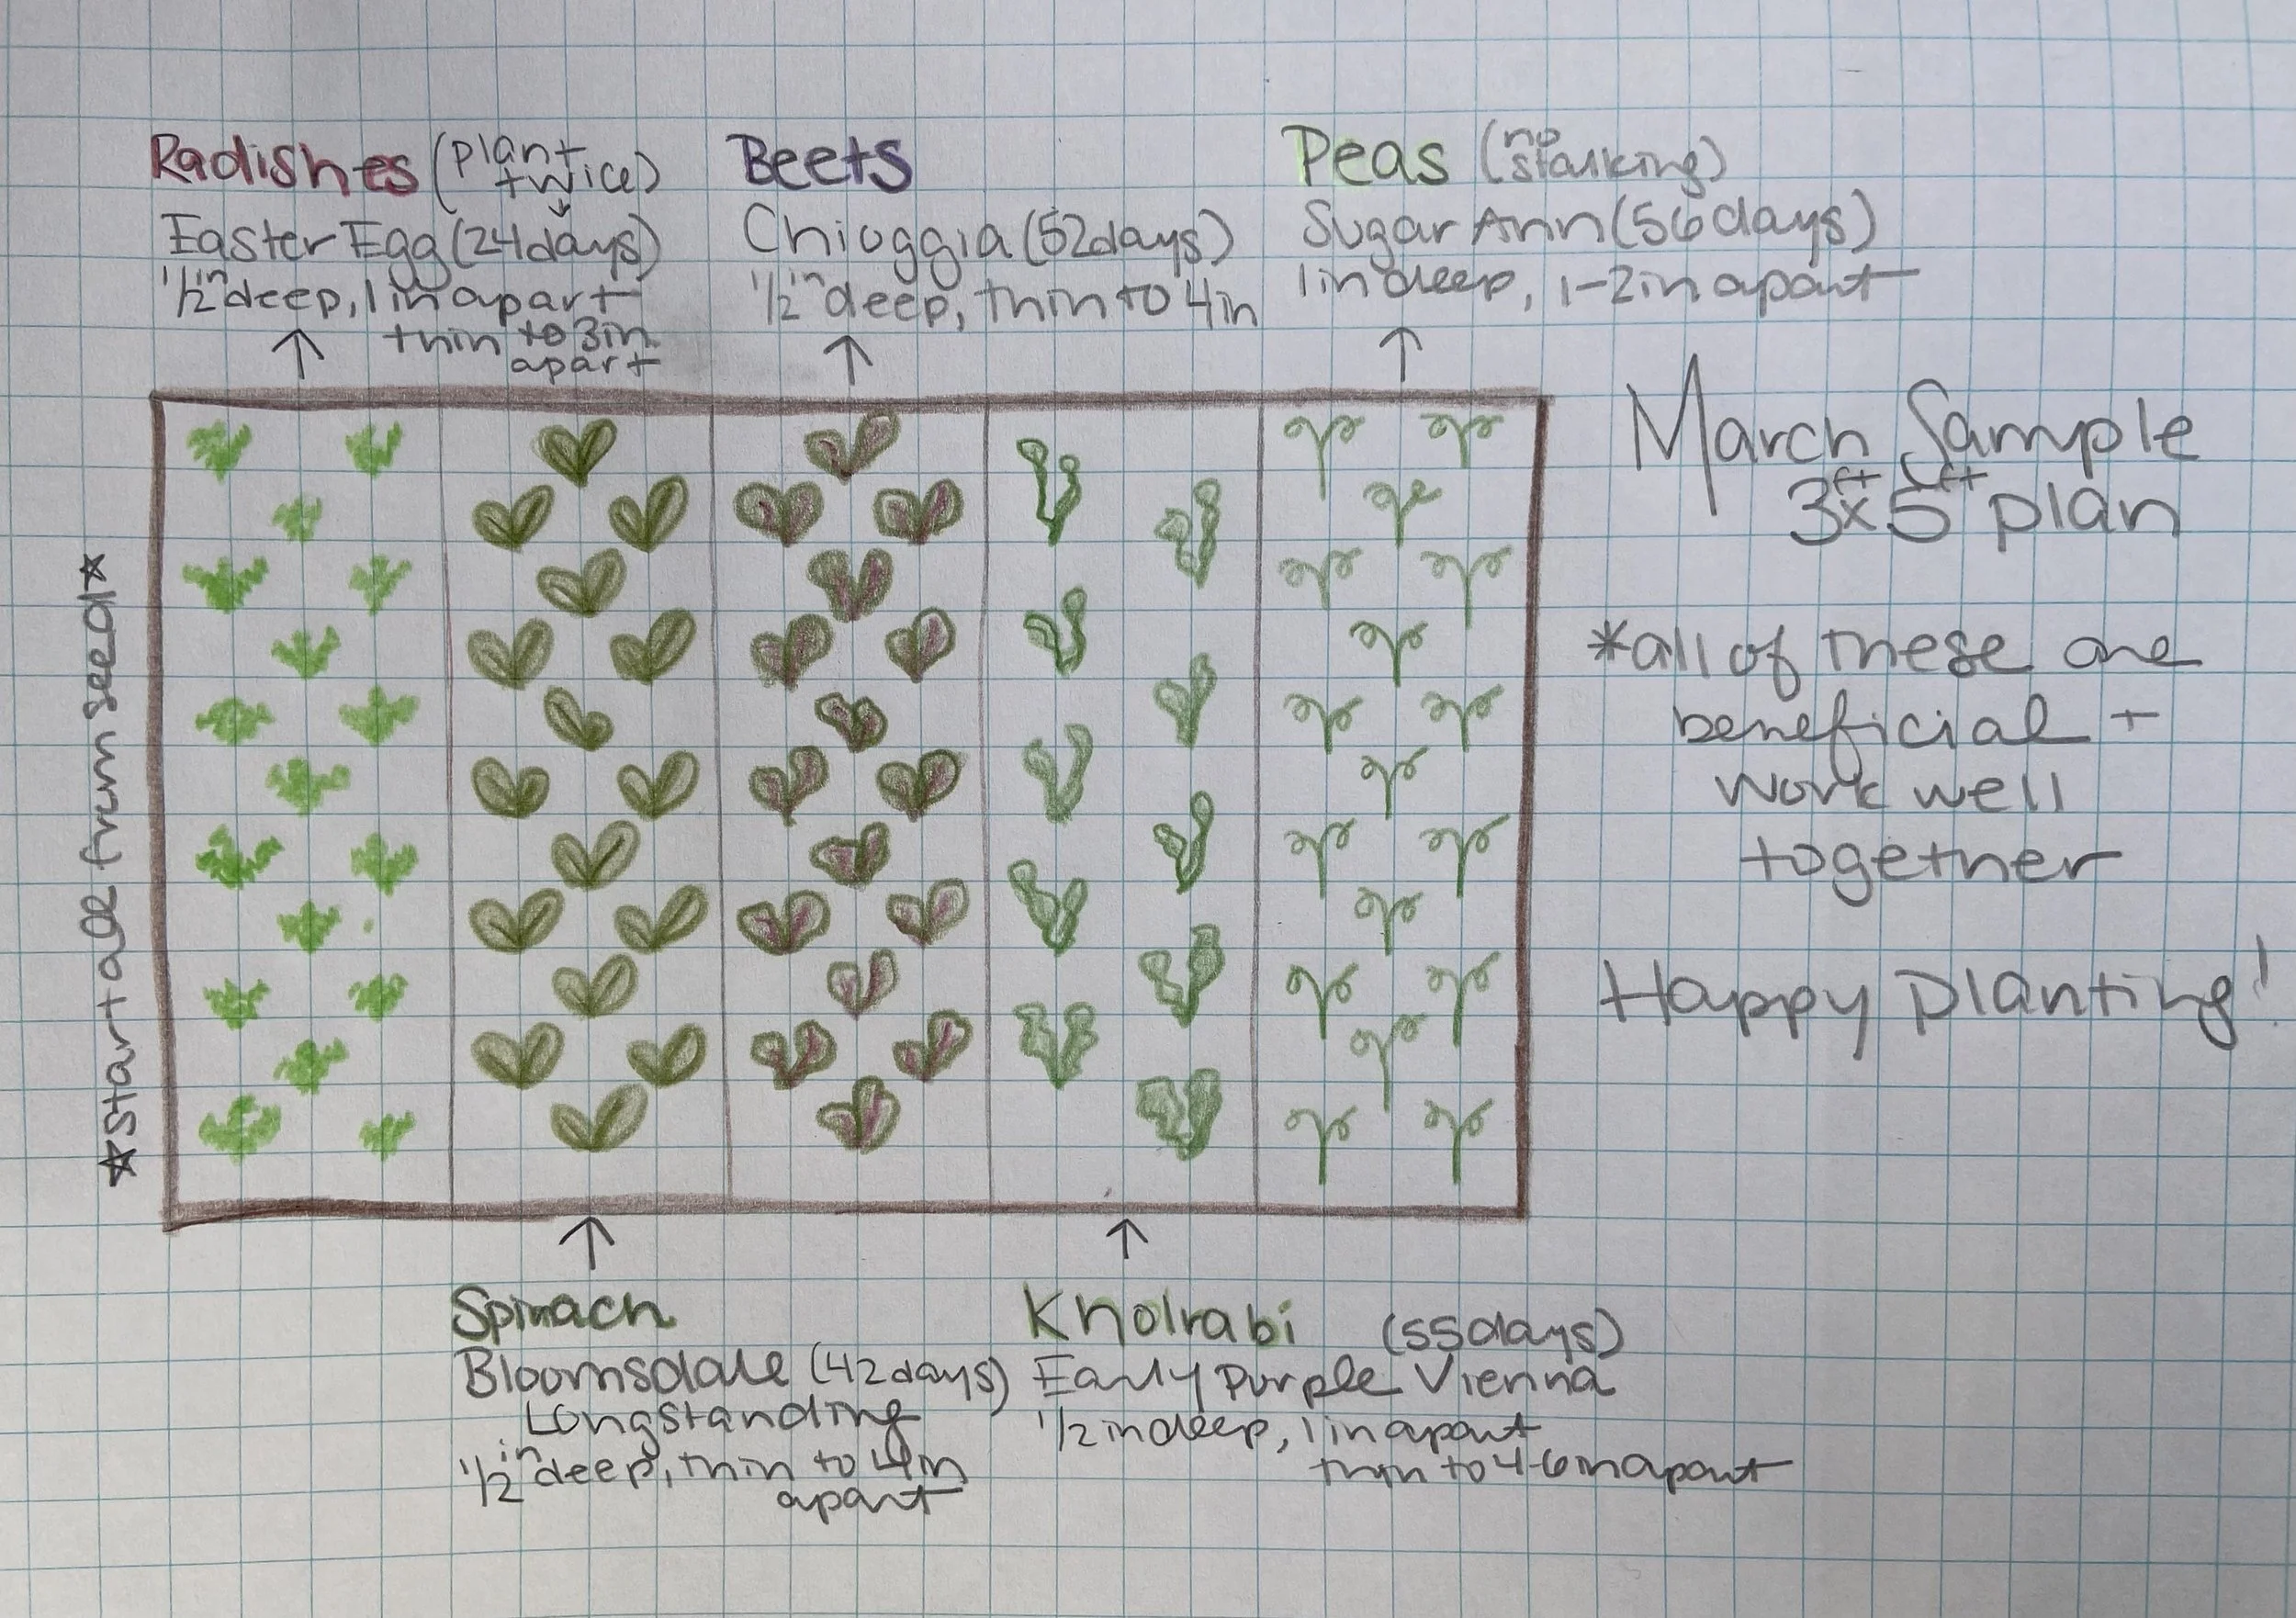 Radishes (plant
twice)
Easter Egg (24 days)
1/2 in deep, 1 in apart
thin to 3in
apart
Beets
Chioggia (52 days)
1/2 in deep, thin to 4in
Peas (no
stalking)
Sugar Ann (56 days)
1 in deep, 1-2 in apart
☆Start all from seed☆
March Sample
3ft x 5ft plan
*all of these are
beneficial +
work well
together
Happy Planting!
Spinach
Bloomsdale (42 days)
Longstanding
1/2 in deep, thin to 4in
apart
Kholrabi (55 days)
Early Purple Vienna
1/2 in deep, 1 in apart
thin to 4-6 in apart